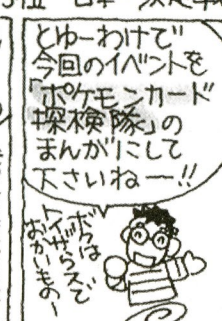 とゆーわけで
今回のイベントを
「ポケモンカード
探検隊」の
まんがにして
下さいねー!!
ボクは
トイザらスで
おかいものー